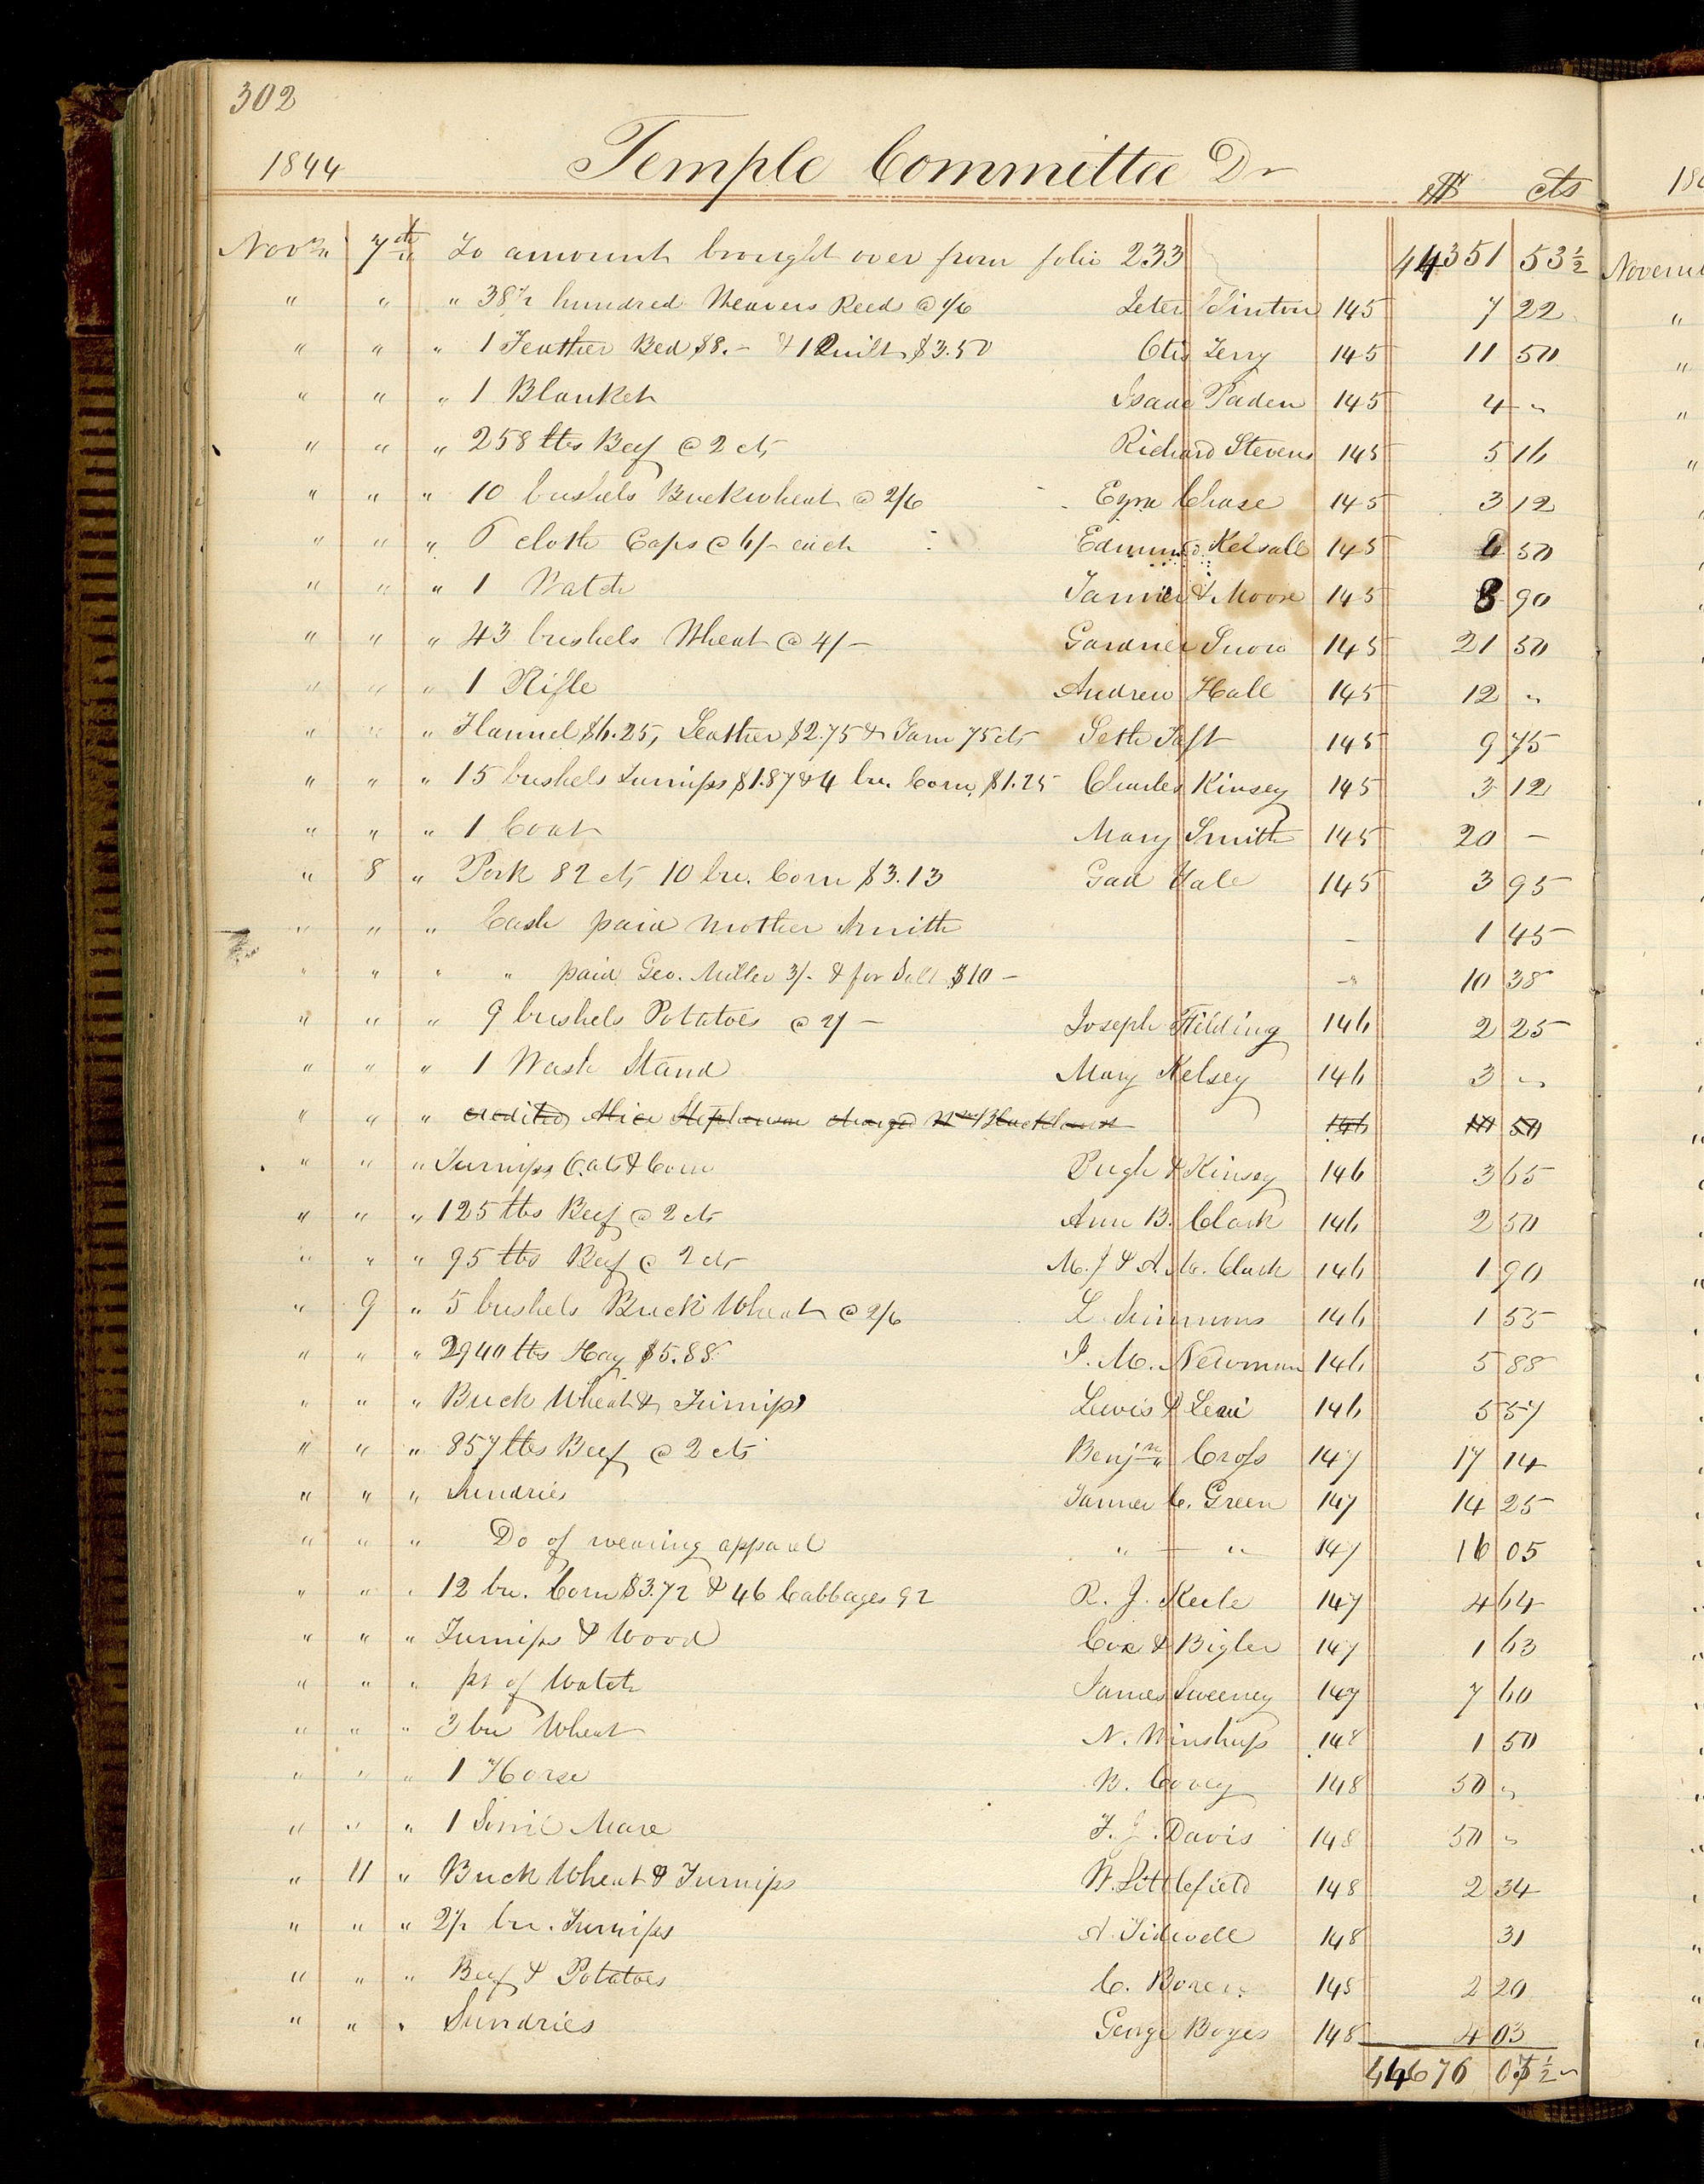 302
1844 Temple Committee Dr $ cts
Nov.r 7th To amount brought over from folio 233 44351 53½
" " " 38½ hundred Weavers Reed @ 1/6 Peter Tinton 145 7 22
" " " 1 Feather Bed $8.– & 1 Quilt $3.50 Otis Terry 145 11 50
" " " 1 Blanket Isaac Paden 145 4 "
" " " 258 lbs Beef @ 2 cts Richard Stevens 145 5 16
" " " 10 bushels Buckwheat @ 2/6 Ezra Chase 145 3 12
" " " 6 cloth Caps @ 6/– each Edmund Kelsall 145 6 50
" " " 1 Watch Tanner & Moore 145 8 90
" " " 43 bushels Wheat @ 4/– Gardner Snow 145 21 50
" " " 1 Rifle Andrew Hall 145 12 "
" " " Flannel $6.25, Leather $2.75 & Yarn 75 cts Seth Taft 145 9 75
" " " 15 bushels Turnips $1.87 & 4 bu. Corn, $1.25 Charles Kinsey 145 3 12
" " " 1 Coat Mary Smith 145 20 –
" 8 " Pork 82 cts 10 bu. Corn $3.13 Gad Yale 145 3 95
" " " Cash paid Mother Smith – 1 45
" " " " paid Geo. Miller 3/– & for Salt $10 – – 10 38
" " " 9 bushels Potatoes @ 2/– Joseph Fielding 146 2 25
" " " 1 Wash Stand Mary Kelsey 146 3 "
" " " credited Alice Stephenson charged Wm Blackhurst 146 10 50
" " " Turnips, Oats & Corn Pugh & Kinsey 146 3 65
" " " 125 lbs Beef @ 2 cts Ann B. Clark 146 2 50
" " " 95 lbs Beef @ 2 cts M. J & A. M. Clark 146 1 90
" 9 " 5 bushels Buck Wheat @ 2/6 L Simmons 146 1 55
" " " 2940 lbs Hay $5.88 J. M. Newman 146 5 88
" " " Buck Wheat & Turnips Lewis & Levi 146 5 57
" " " 857 lbs Beef @ 2 cts Benjn Cross 147 17 14
" " " Sundries Tanner C. Green 147 14 25
" " " Do of wearing apparel " – " 147 16 05
" " " 12 bu. Corn $3.72 & 46 Cabbages 92 R. J. Keele 147 4 64
" " " Turnips & Wood Cox & Bigler 147 1 63
" " " pt of Watch James Sweeney 147 7 60
" " " 3 bu Wheat N. Winship 148 1 50
" " " 1 Horse W. Corey 148 50 "
" " " 1 Sorril Mare F. J. Davis 148 50 "
" 11 " Buck Wheat & Turnips W. Littlefield 148 2 34
" " " 2½ bu. Turnips A. Tidwell 148 31
" " " Beef & Potatoes C. Boren 148 2 20
" " " Sundries George Boyes 148 4 03
44676 07½